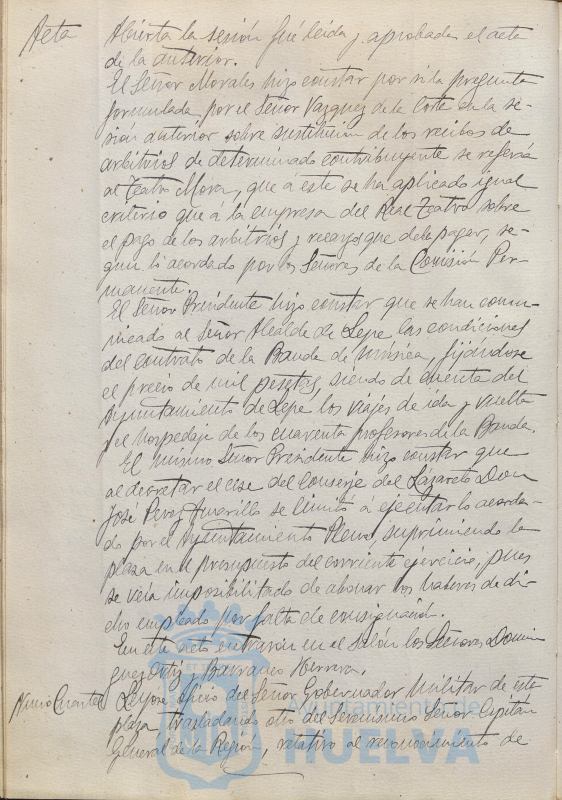 Acta
Abierta la sesión fué leida y aprobada el acta
de la anterior.
El Señor Morales hizo constar por si la pregunta
formulada por el Señor Vazquez de la Corte en la se-
sión anterior sobre sustitución de los recibos de
arbitrios de determinado contribuyente se referia
al Teatro Mora, que á este se ha aplicado igual
criterio que á la empresa del Real Teatro sobre
el pago de los arbitrios y recargos que deba pagar, se-
gun lo acordado por los Señores de la Comisión Per-
manente.
El Señor Presidente hizo constar que se han comu-
nicado al Señor Alcalde de Lepe las condiciones
del contrato de la Banda de música, fijándose
el precio de mil pesetas, siendo de cuenta del
Ayuntamiento de Lepe los viajes de ida y vuelta
y el hospedaje de los cuarenta profesores de la Banda.
El mismo Señor Presidente hizo constar que
al decretar el cese del Conserje del Lazareto Don
José Perez Amarillo se limitó á ejecutar lo acorda-
do por el Ayuntamiento Pleno, suprimiendo la
plaza en el presupuesto del corriente ejercicio, pues
se veia imposibilitado de abonar los haberes de di-
cho empleado por falta de consignación.
En este acto entraron en el Salón los Señores Domin
guez Ortiz y Barranco Herrera.
Nuevo Cuartel
Leyose oficio del Señor Gobernador Militar de esta
plaza trasladando otro del Serenisimo Señor Capitan
General de la Región, relativo al reconocimiento de
Ayuntamiento de
HUELVA